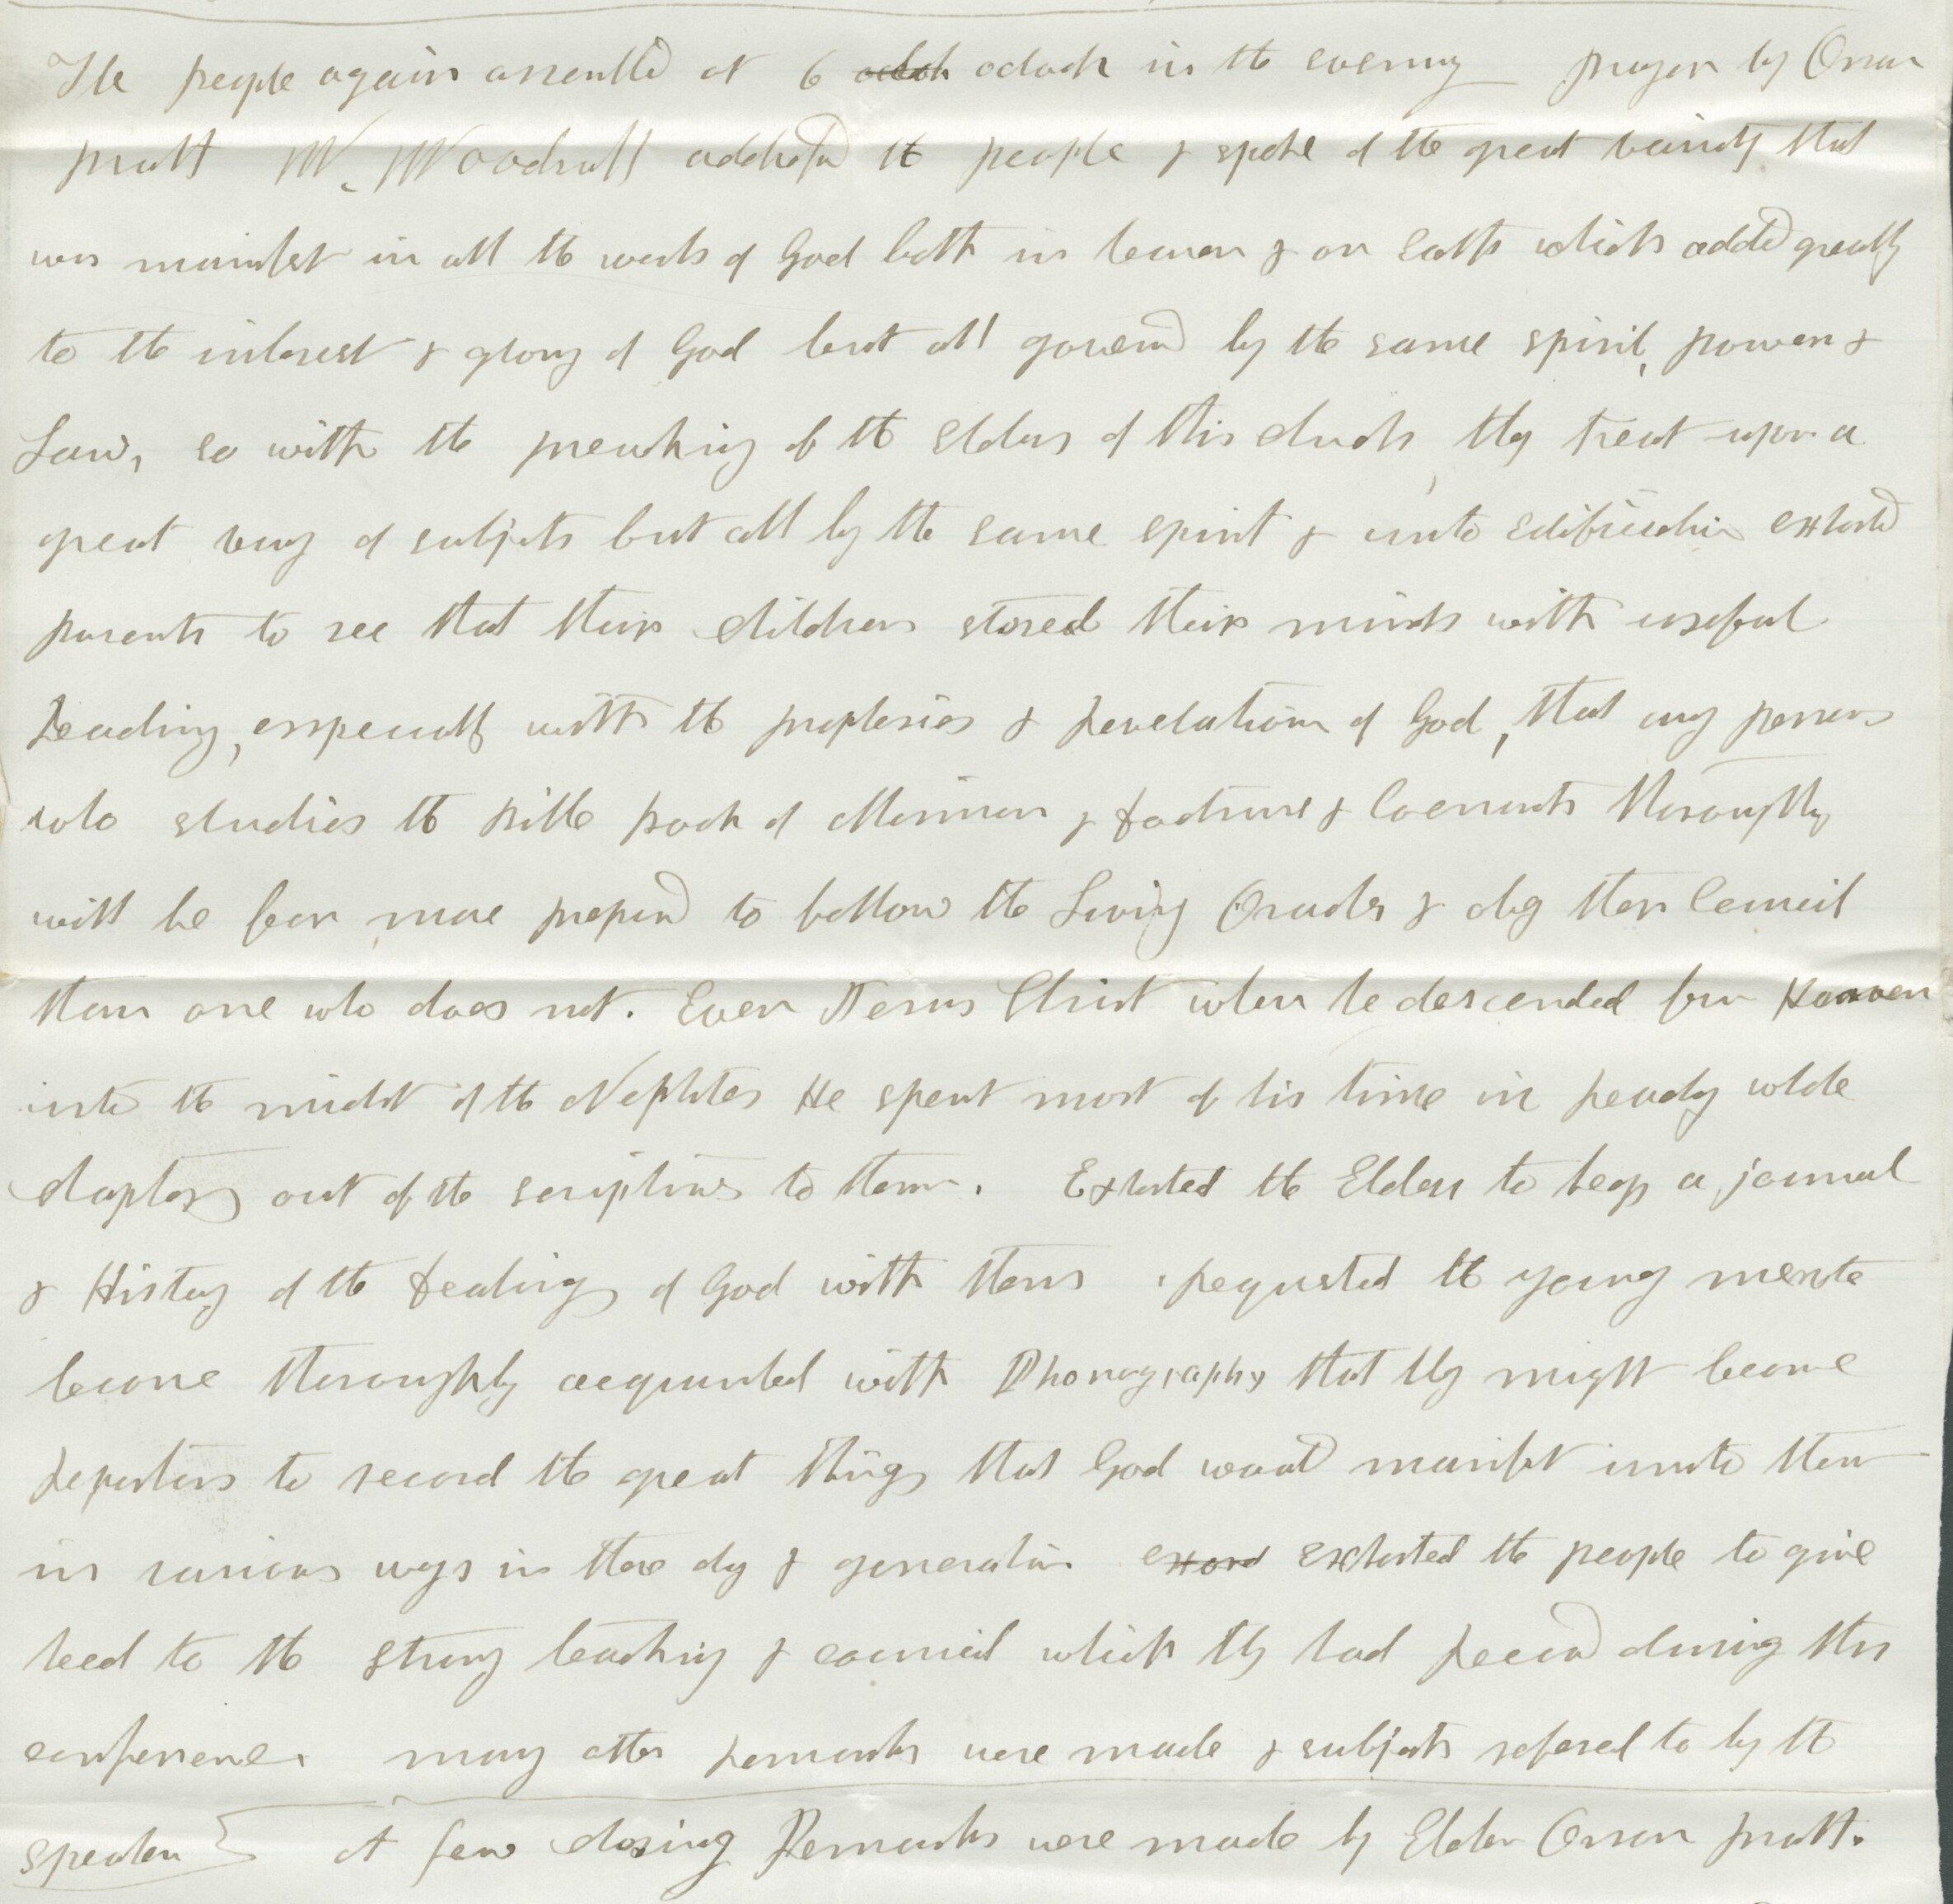 The people again assembled at 6 oclok oclock in the evening prayer by Orson
pratt W. Woodruff addressed the people & spoke of the great variety that
was manifest in all the works of God both in heaven & on Earth which added greatly
to the interest & glory of God but all governed by the same spirit, power &
Law, so with the preaching of the Elders of this church, they treat upon a
great vary of subjets but all by the same spirit & unto Edification exhorted
parents to see that their children stored their minds with useful
Reading, espeically with the prophesies & Revelation of God, that any person
who studies the Bible Book of Mormon & Doctrine & Covenants thoroughly
will be far more prepared to follow the Living Oracles & obey ther Council
than one who does not. Even Jesus Christ when he descended from Heaven
into the midst of the Nephites He spent most of his time in Reading whole
chapters out of the scriptures to them. Exhorted the Elders to keep a journal
& History of the dealings of God with them requested the young men to
become thoroughly acquainted with Phonography that they might become
Reporters to record the great things that God would manifest unto them
in various ways in there day & generation exhord Exhorted the people to give
heed to the strong teaching & council which they had Received during this
conference. many other Remarks were made & subjects refered to by the
speaker A few closing Remarks were made by Elder Orson pratt.